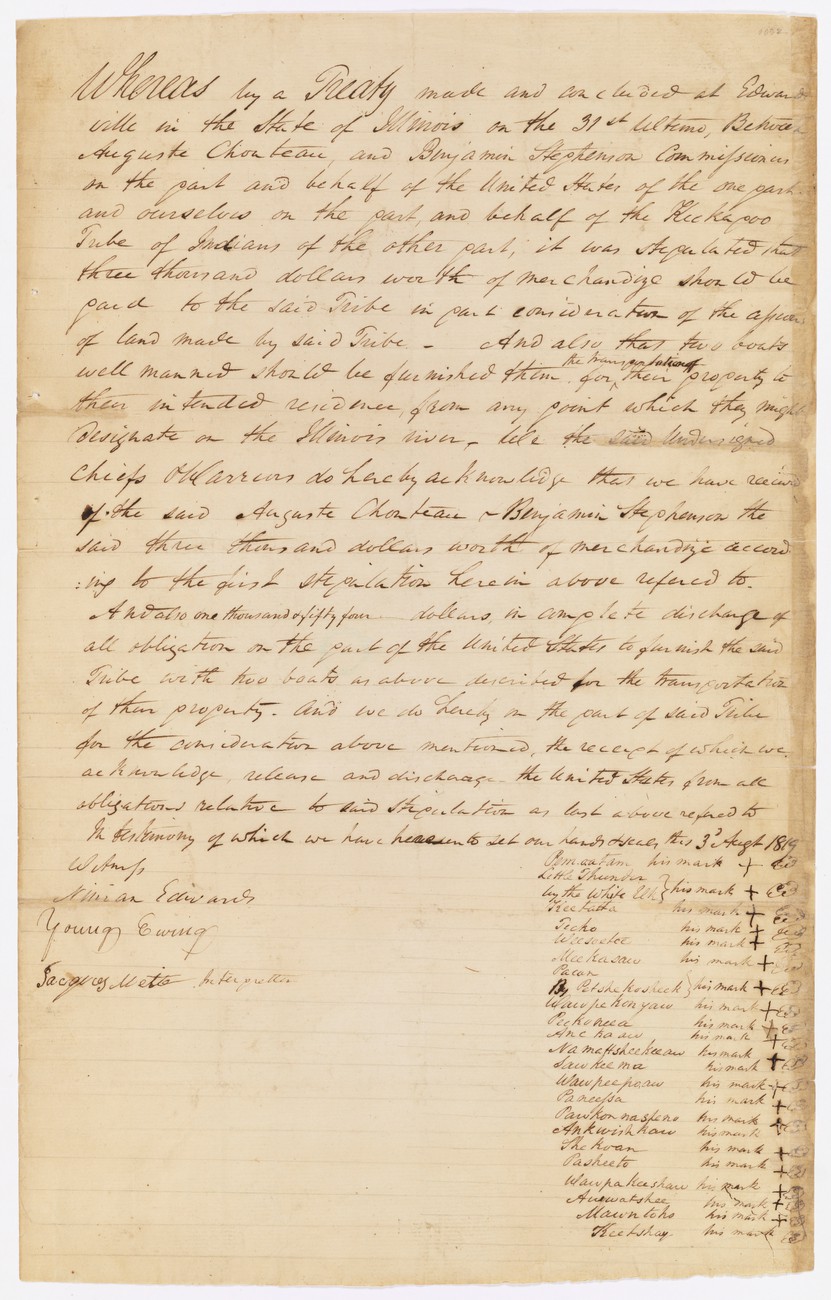 Whereas by a Treaty made and concluded at Edward
ville in the State of Illinois on the 31st Ultimo, Between
Auguste Chouteau, and Benjamin Stephenson Commissioners
on the part and behalf of the United States of the one part
and ourselves on the part, and behalf of the Kickapoo
Tribe of Indians of the other part; it was stipulated that
three thousand dollars worth of merchandize should be
paid to the said Tribe in part consideration of the
of land made by said Tribe - And also that two boats
well manned should be furnished them for the transportation of their property to
their intended residence, from any point which they might
designate on the Illinois river, We the said Undersigned
Chiefs & Warriors do hereby acknowledge that we have received
of the said Auguste Chouteau & Benjamin Stephenson the
said three thousand dollars worth of merchandize accord
:ing to the first stipulation herein above refered to.
And also one thousand & fifty four dollars, in complete discharge of
all obligation on the part of the United States to furnish the said
Tribe with two boats as above described for the transportation
of their property. And we do hereby on the part of said Tribe
for the consideration above mentioned, the receipt of which we
acknowledge, release and discharge the United States from all
obligations relative to said stipulation as last above refered to
In testimony of which we have hereunto set our hands & seals this 3d Augt 1819
Witness
Ninian Edwards
Young Ewing
Jacques Mette Interpretter
Pemoatam his mark +
Little Thunder
by the White Elk } his mark +
Keetatta his mark +
Tecko his mark +
Weesoetee his mark +
Meekasaw his mark +
Pacan
By Petshekosheck } his mark +
Wawpekonyaw his mark +
Peckoneea his mark +
Anckaaw his mark +
Namattsheekeeaw his mark +
Sawkeema his mark +
Wawpeepoaw his mark +
Paneessa his mark +
Pawkonnasheno his mark +
Ankwiskkaw his mark +
Shekoan his mark +
Pasheeto his mark +
Wawpakeeshaw his mark +
Auwatshee his mark +
Mawntoho his mark +
Keetshay his mark